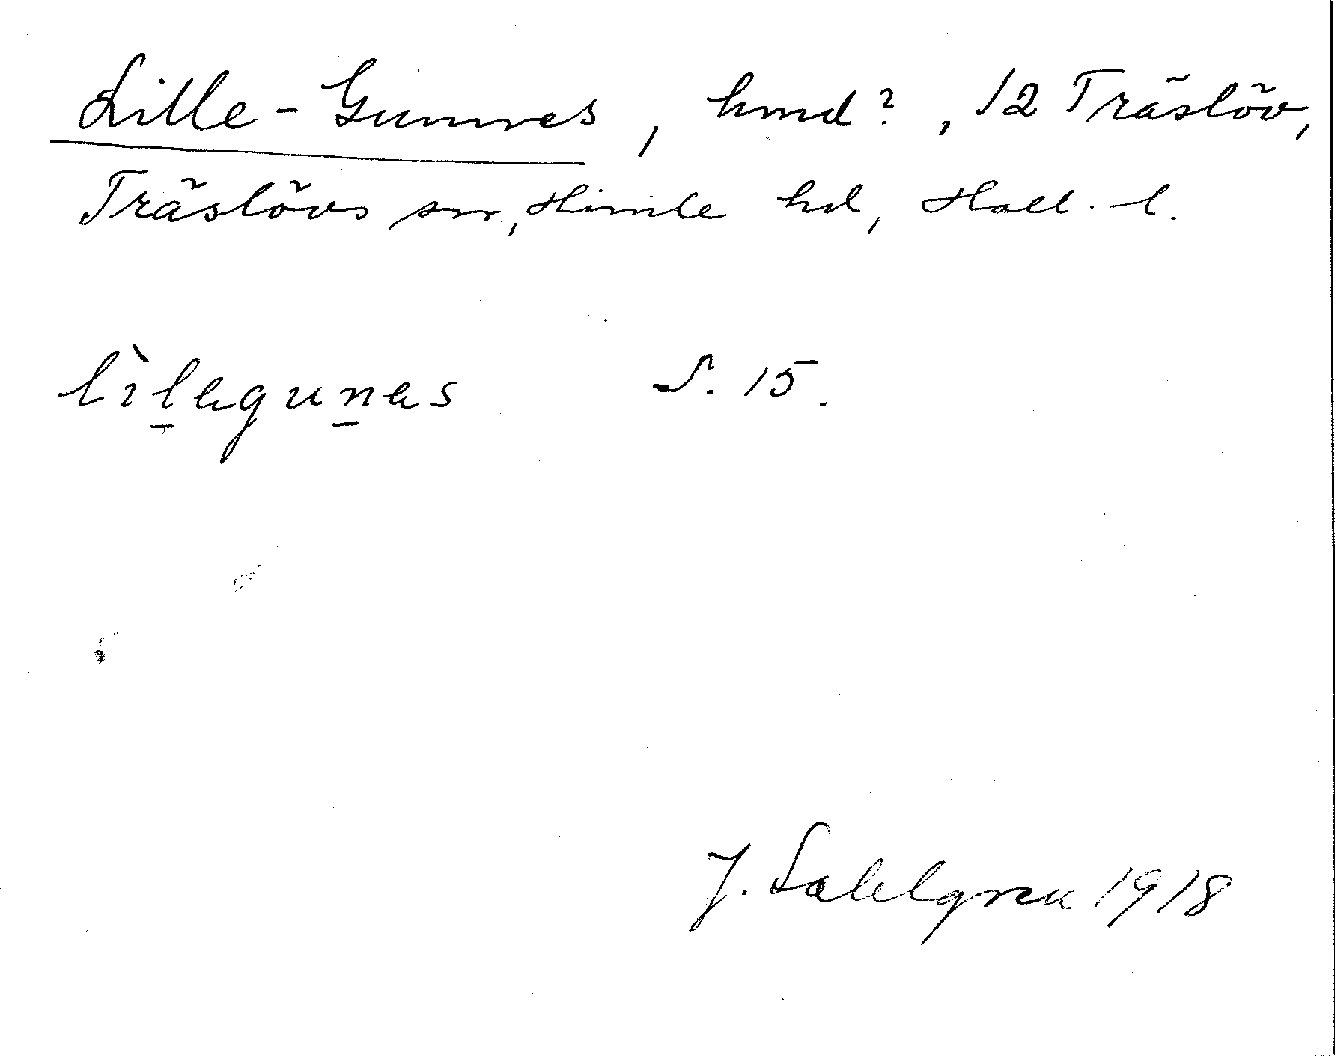 Lille-Gunnes, hmd?, 12 Träslöv,
Träslövs sn, Himle hd, Hall. l.
lìlagunas S. 15.
J. Sahlgren 1918